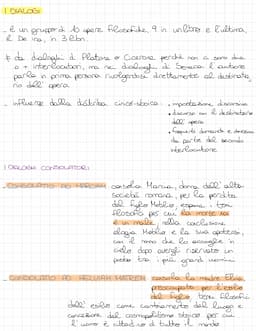 I DIALOGI
- è un gruppo di 10 opere filosofiche, 9 in un libro e l'ultima,
il De ira, in 3 libri.
≠ da dialoghi di Platone e Cicerone perché non ci sono due
o + interlocutori, ma nei dialoghi di Seneca l'autore
parla in prima persona rivolgendosi direttamente al destinata-
rio dell'opera
- influenze dalla diatriba cinico-stoica: • impostazione discorsiva
• discorso con il destinatario
dell'opera
• frequenti domande e
da parte del secondo
interlocutore
I DIALOGHI CONSOLATORI
- CONSOLATIO AD MARCIAM consola Marcia, donna dell'alta
società romana, per la perdita
del figlio Metilio, espone i temi
filosofici per cui la morte non
è un male, alla conclusione
elogia Metilio e la sua apoteosi,
con il nonno che lo accoglie in
cielo dopo avergli riservato un
posto tra i più grandi uomini
- CONSOLATIO AD HELVIAM MATREM consola la madre Elvia,
preoccupata per l'esilio
del figlio, temi filosofici
dell'esilio come cambiamento del luogo e
concezione del cosmopolitismo stoico per cui
l'uomo è cittadino di tutto il mondo